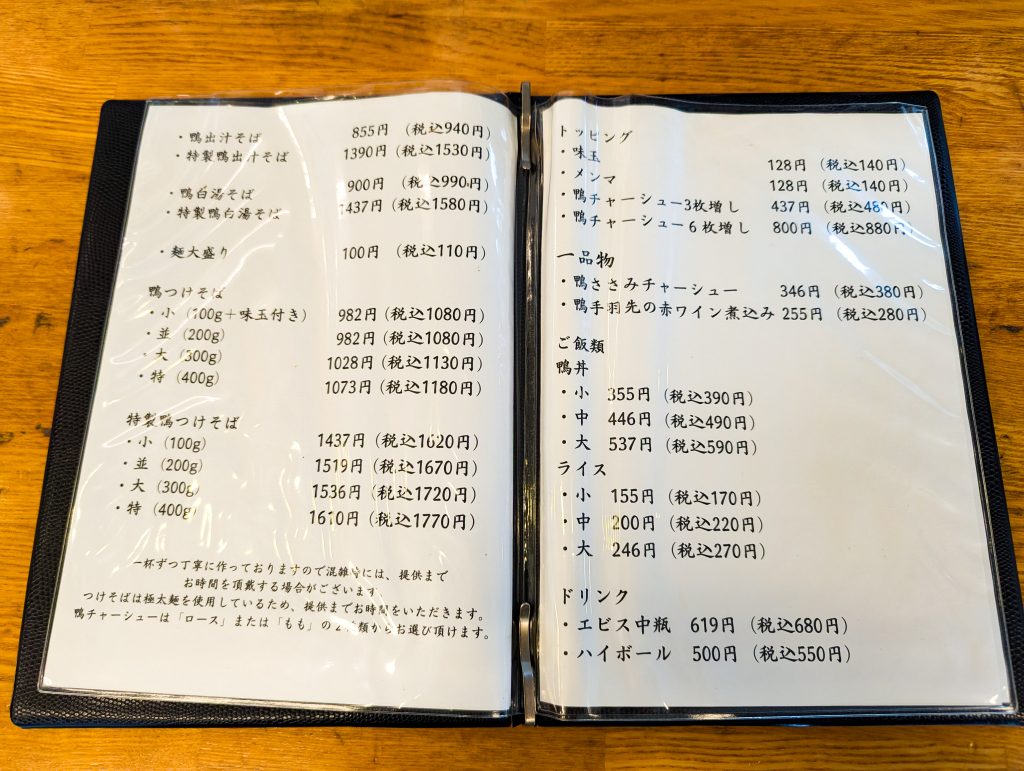 ・鴨出汁そば 855円 (税込940円)
・特製鴨出汁そば 1390円 (税込1530円)
・鴨白湯そば 900円 (税込990円)
・特製鴨白湯そば 1437円 (税込1580円)
・麺大盛り 100円 (税込110円)
鴨つけそば
・小 (100g＋味玉付き) 982円 (税込1080円)
・並 (200g) 982円 (税込1080円)
・大 (300g) 1028円 (税込1130円)
・特 (400g) 1073円 (税込1180円)
特製鴨つけそば
・小 (100g) 1437円 (税込1620円)
・並 (200g) 1519円 (税込1670円)
・大 (300g) 1536円 (税込1720円)
・特 (400g) 1610円 (税込1770円)
一杯ずつ丁寧に作っておりますので混雑時には、提供まで
お時間を頂戴する場合がございます
つけそばは極太麺を使用しているため、提供までお時間をいただきます。
鴨チャーシューは「ロース」または「もも」の2種類からお選び頂けます。
トッピング
・味玉 128円 (税込140円)
・メンマ 128円 (税込140円)
・鴨チャーシュー3枚増し 437円 (税込480円)
・鴨チャーシュー６枚増し 800円 (税込880円)
一品物
・鴨ささみチャーシュー 346円 (税込380円)
・鴨手羽先の赤ワイン煮込み 255円 (税込280円)
ご飯類
鴨丼
・小 355円 (税込390円)
・中 446円 (税込490円)
・大 537円 (税込590円)
ライス
・小 155円 (税込170円)
・中 200円 (税込220円)
・大 246円 (税込270円)
ドリンク
・エビス中瓶 619円 (税込680円)
・ハイボール 500円 (税込550円)